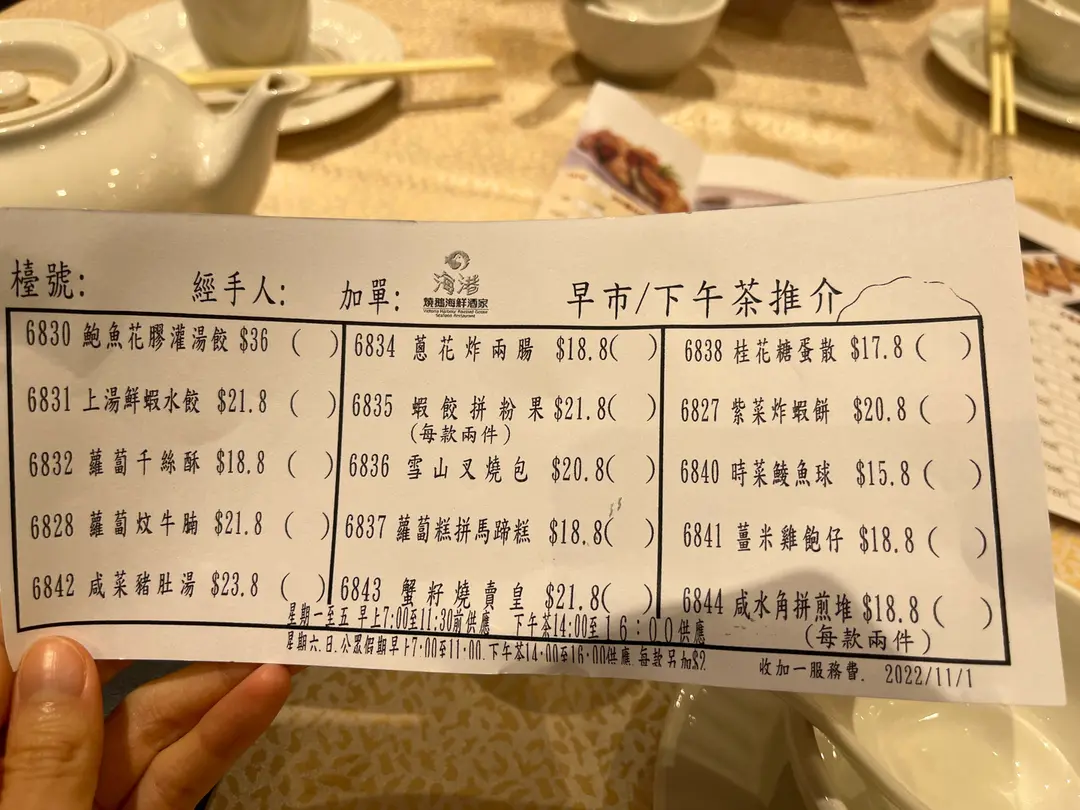 檯號:
經手人:
加單:
海港
燒鵝海鮮酒家
Victoria Harbour Roasted Goose
Seafood Restaurant
早市/下午茶推介
6830 鮑魚花膠灌湯餃 $36 ( )
6831 上湯鮮蝦水餃 $21.8 ( )
6832 蘿蔔千絲酥 $18.8 ( )
6828 蘿蔔炆牛腩 $21.8 ( )
6842 咸菜豬肚湯 $23.8 ( )
6834 蔥花炸兩腸 $18.8( )
6835 蝦餃拼粉果 $21.8( )
(每款兩件)
6836 雪山叉燒包 $20.8( )
6837 蘿蔔糕拼馬蹄糕 $18.8( )
6843 蟹籽燒賣皇 $21.8( )
6838 桂花糖蛋散 $17.8 ( )
6827 紫菜炸蝦餅 $20.8 ( )
6840 時菜鯪魚球 $15.8 ( )
6841 薑米雞飽仔 $18.8 ( )
6844 咸水角拼煎堆 $18.8 ( )
(每款兩件)
星期一至五 早上7:00至11:30前供應 下午茶14:00至16:00供應
星期六.日.公眾假期早上7:00至11:00.下午茶14:00至16:00供應.每款另加$2
收加一服務費. 2022/11/1